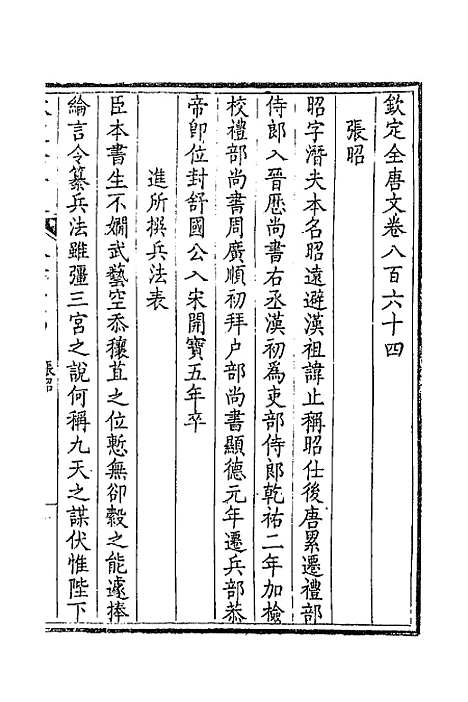 欽定全唐文卷八百六十四
張昭
昭字潛夫本名昭遠避漢祖諱止稱昭仕後唐累遷禮部
侍郎入晉歷尚書右丞漢初爲吏部侍郎乾祐二年加檢
校禮部尚書周廣順初拜户部尚書顯德元年遷兵部恭
帝卽位封舒國公入宋開寶五年卒
進所撰兵法表
臣本書生不嫺武藝空忝穰苴之位慙無卻縠之能遽捧
綸言令纂兵法雖彊三宮之說何稱九天之謀伏惟陛下
張昭